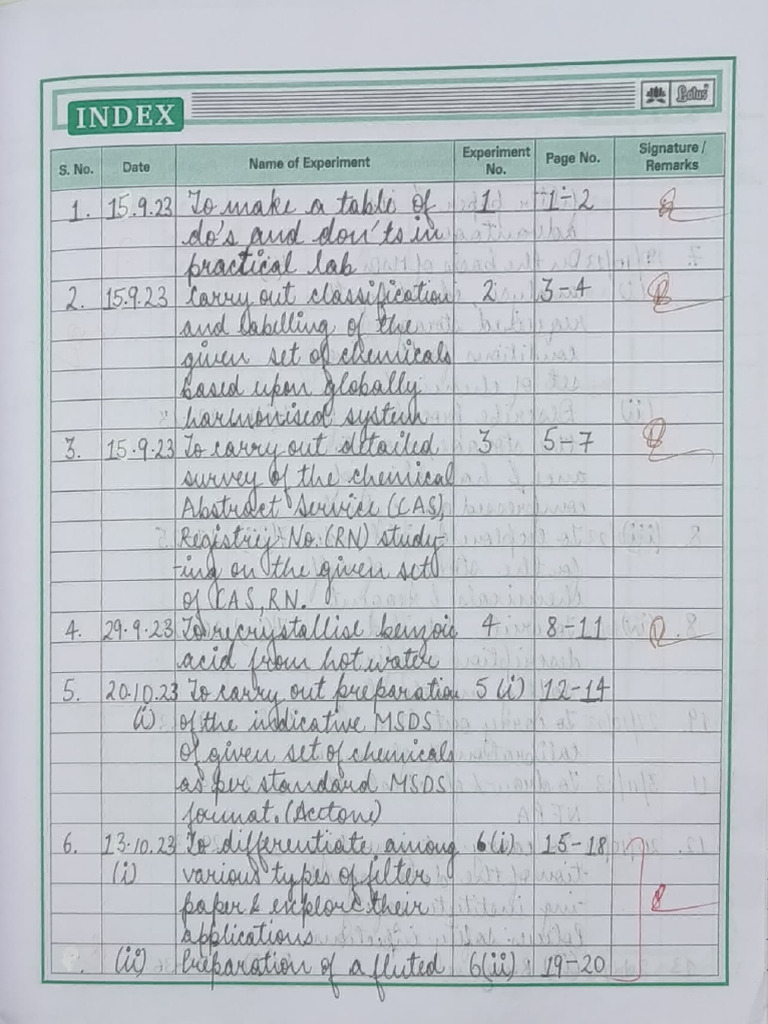 Lotus
INDEX
S. No. Date Name of Experiment Experiment No. Page No. Signature / Remarks
1. 15.9.23 To make a table of 1 1-2
do's and don'ts in
practical lab
2. 15.9.23 Carry out classification 2 3-4
and labelling of the
given set of chemicals
based upon globally
harmonised system
3. 15.9.23 To carry out detailed 3 5-7
survey of the chemical
Abstract Service (CAS)
Registrey No. (RN) study-
-ing on the given set
of CAS, RN.
4. 29.9.23 To recrystallise benzoic 4 8-11
acid from hot water
5. 20.10.23 To carry out preparation 5 (i) 12-14
(i) of the indicative MSDS
of given set of chemicals
as per standard MSDS
format. (Acetone)
6. 13.10.23 To differentiate among 6(i) 15-18
(i) various types of filter
paper & explore their
applications
(ii) Preparation of a fluted 6(ii) 19-20